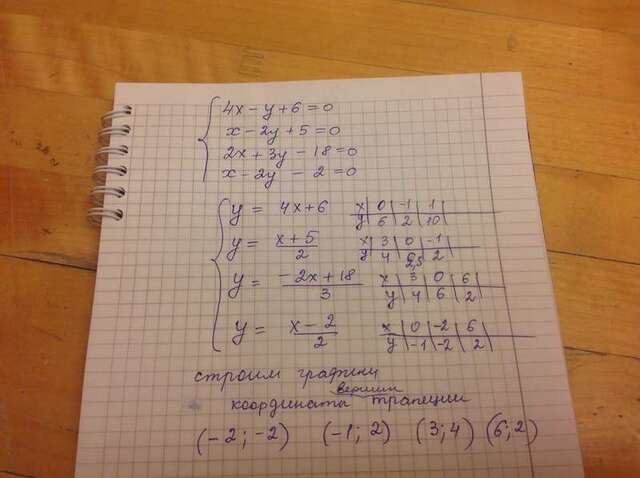 4x - y + 6 = 0
x - 2y + 5 = 0
2x + 3y - 18 = 0
x - 2y - 2 = 0
y = 4x + 6 x | 0 | -1 | 1
y | 6 | 2 | 10
y = (x + 5)/2 x | 3 | 0 | -1
y | 4 | 2,5 | 2
y = (-2x + 18)/3 x | 3 | 0 | 6
y | 4 | 6 | 2
y = (x - 2)/2 x | 0 | -2 | 6
y | -1 | -2 | 2
строим графики
вершин
координаты трапеции
(-2; -2) (-1; 2) (3; 4) (6; 2)